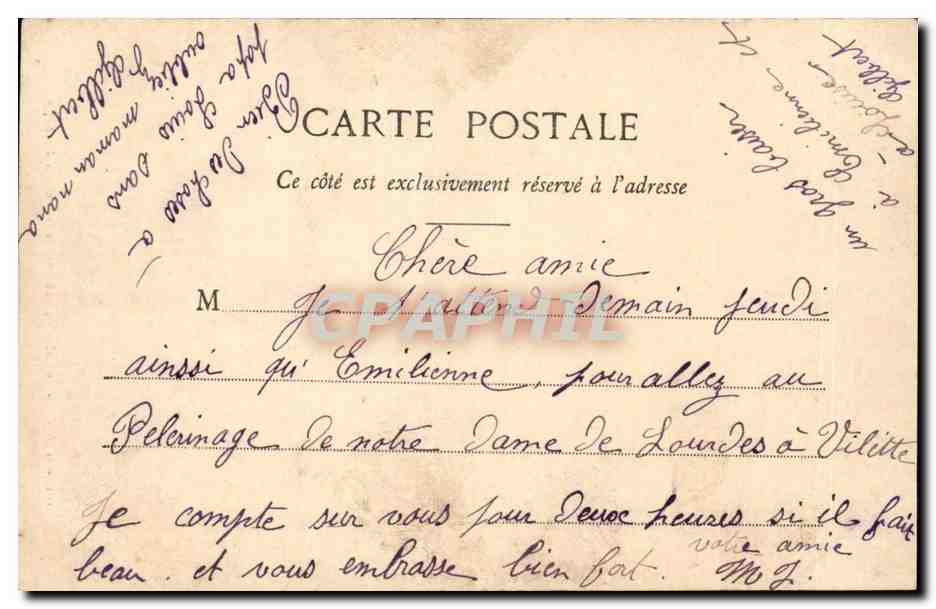 CARTE POSTALE
Ce côté est exclusivement réservé à l'adresse
Chère amie
M Je t'attend demain jeudi
ainsi qu'Emilienne, pour allez au
Pelerinage de notre dame de Lourdes à Vilette
Je compte sur vous pour deux heures si il fait
beau. et vous embrasse bien fort. votre amie
M J.
Bien des choses à
papa Louis sans
oubliez maman nana
Gilbert
un gros baiser
à Emilienne et
à Louise
Gilbert
CPAPHIL